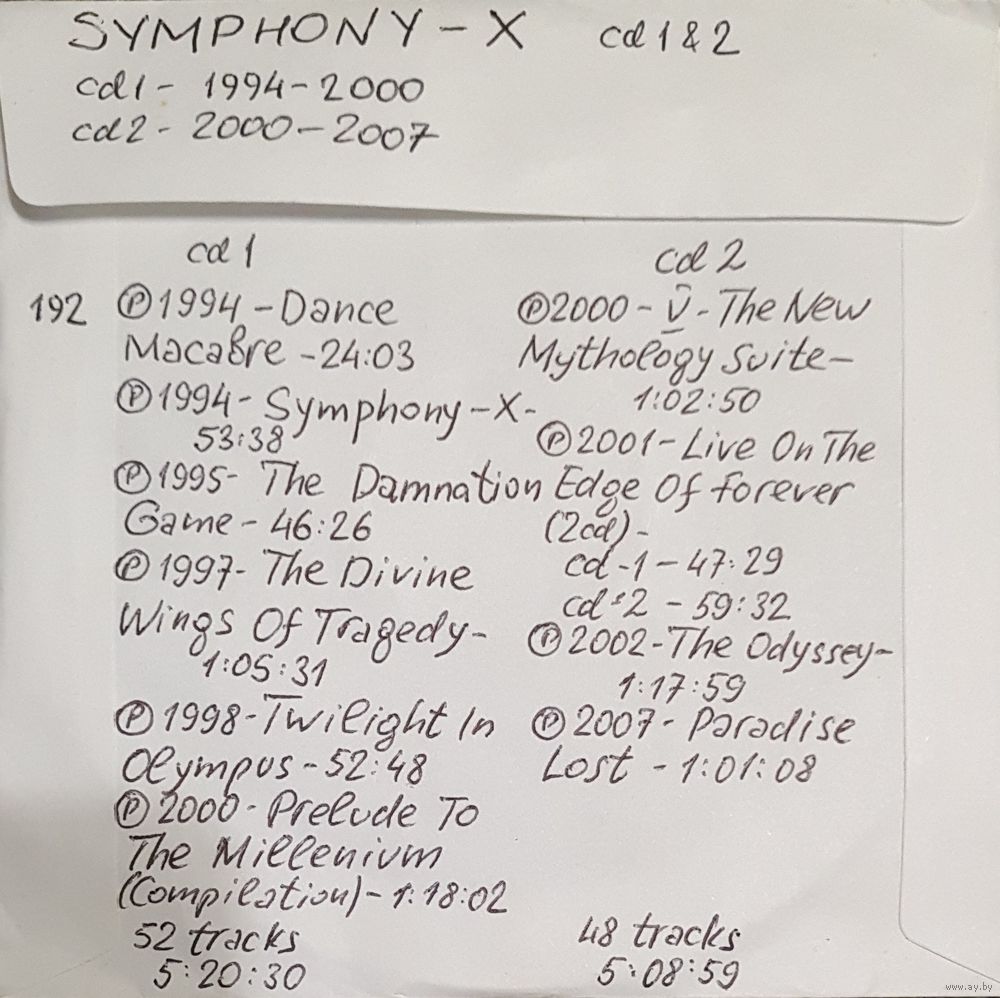 SYMPHONY - X cd 1 & 2
cd1 - 1994-2000
cd2 - 2000-2007
cd 1
192 Ⓟ1994 - Dance
Macabre - 24:03
Ⓟ1994 - Symphony-X-
53:38
Ⓟ1995- The Damnation
Game - 46:26
Ⓟ1997- The Divine
Wings Of Tragedy-
1:05:31
Ⓟ1998-Twilight In
Olympus - 52:48
Ⓟ2000 - Prelude To
The Millenium
(Compilation) - 1:18:02
52 tracks
5:20:30
cd 2
Ⓟ2000 - V - The New
Mythology Suite-
1:02:50
Ⓟ2001- Live On The
Edge Of forever
(2cd)-
cd-1 - 47:29
cd-2 - 59:32
Ⓟ2002-The Odyssey-
1:17:59
Ⓟ2007- Paradise
Lost - 1:01:08
48 tracks
5:08:59
www.ay.by